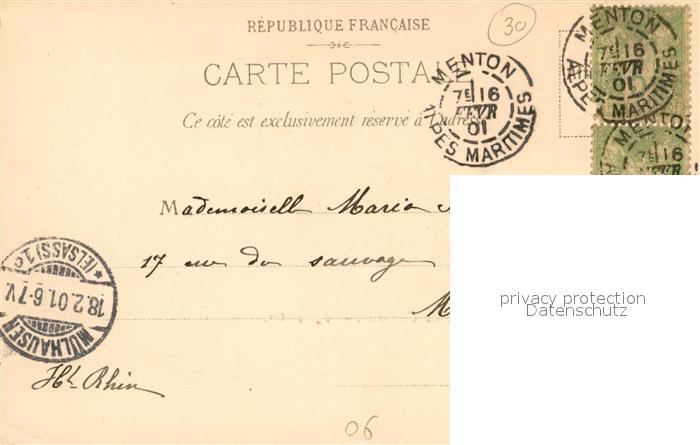 RÉPUBLIQUE FRANÇAISE
30
CARTE POSTALE
Ce côté est exclusivement réservé à l'adresse
MENTON
7E 16
FEVR
01
ALPES MARITIMES
MENTON
7E 16
FEVR
01
ALPES MARITIMES
MENTON
7E 16
FEVR
Mademoisell Maria
17 rue du sauvage
M
MÜLHAUSEN
18.2.01.6-7V.
*(ELSASS)1c
Ht Rhin
06
privacy protection
Datenschutz